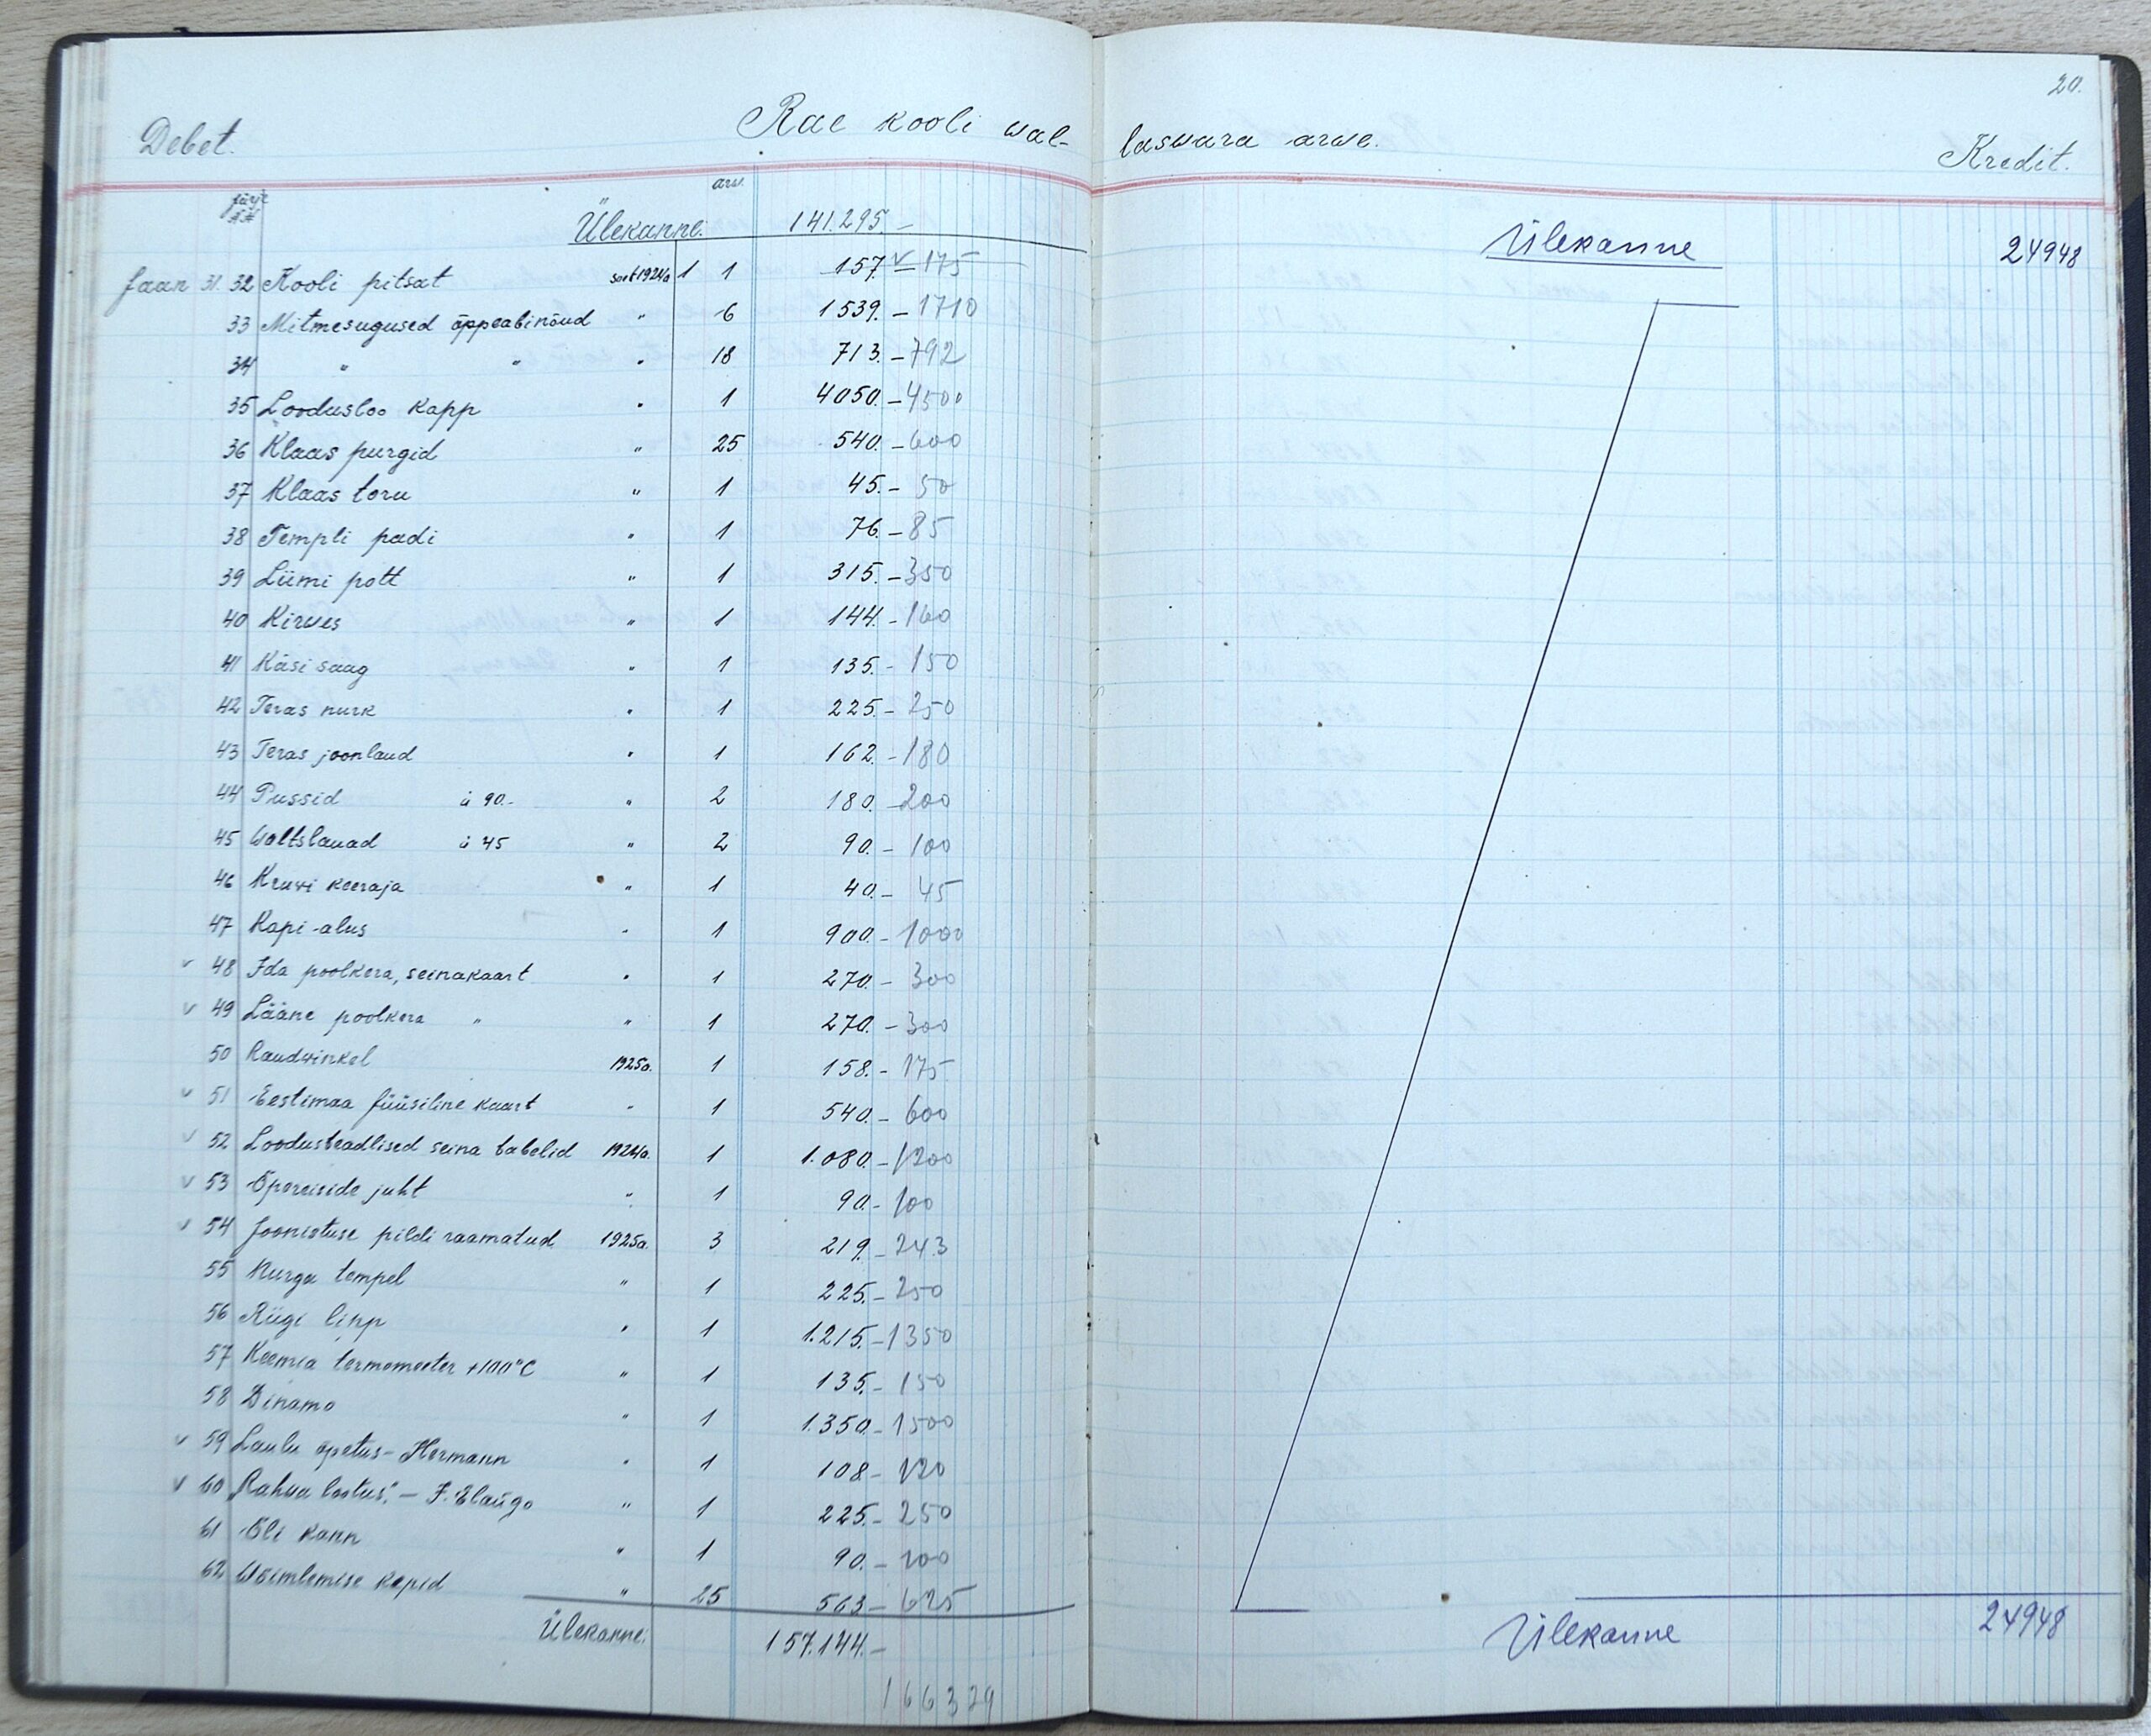 20.
Debet. Rae kooli wal- laswara arwe. Kredit.
järje
№№ arv.
Ülekanne. 141.295.–
Jaan 31. 32 Kooli pitsat 1924a 1 1 157.– 175
33 Mitmesugused õppeabinõud " 6 1539.– 1710
34 " " " 18 713.– 792
35 Loodusloo kapp " 1 4050.– 4500
36 Klaas purgid " 25 540.– 600
37 Klaas toru " 1 45.– 50
38 Templi padi " 1 76.– 85
39 Liimi pott " 1 315.– 350
40 Kirves " 1 144.– 160
41 Käsi saag " 1 135.– 150
42 Teras nurk " 1 225.– 250
43 Teras joonlaud " 1 162.– 180
44 Pussid à 90.– " 2 180.– 200
45 Waltslauad à 45 " 2 90.– 100
46 Kruvi keeraja " 1 40.– 45
47 Kapi-alus " 1 900.– 1000
v 48 Ida poolkera, seinakaart " 1 270.– 300
v 49 Lääne poolkera " " 1 270.– 300
50 Raudwinkel 1925a. 1 158.– 175
v 51 Eestimaa füüsiline kaart " 1 540.– 600
v 52 Loodusteadlised seina tabelid 1924a. 1 1.080.– 1200
v 53 Õpereiside juht " 1 90.– 100
v 54 Joonistuse pildi raamatud 1925a. 3 219.– 243
55 Nurga tempel " 1 225.– 250
56 Riigi lipp " 1 1.215.– 1350
57 Keemia termomeeter +100°C " 1 135.– 150
58 Dinamo " 1 1.350.– 1500
v 59 Laulu õpetus – Hermann " 1 108.– 120
v 60 „Rahva lootus". – J. " 1 225.– 250
61 Õli kann " 1 90.– 100
62 Wõimlemise kepid " 25 563.– 625
Ülekanne: 157.144.–
166329
Ülekanne 24948
Ülekanne 24948